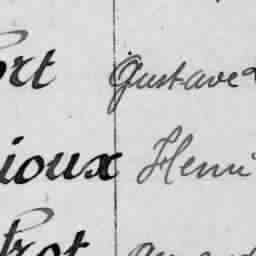 ort Gustave
ioux Henri
rot